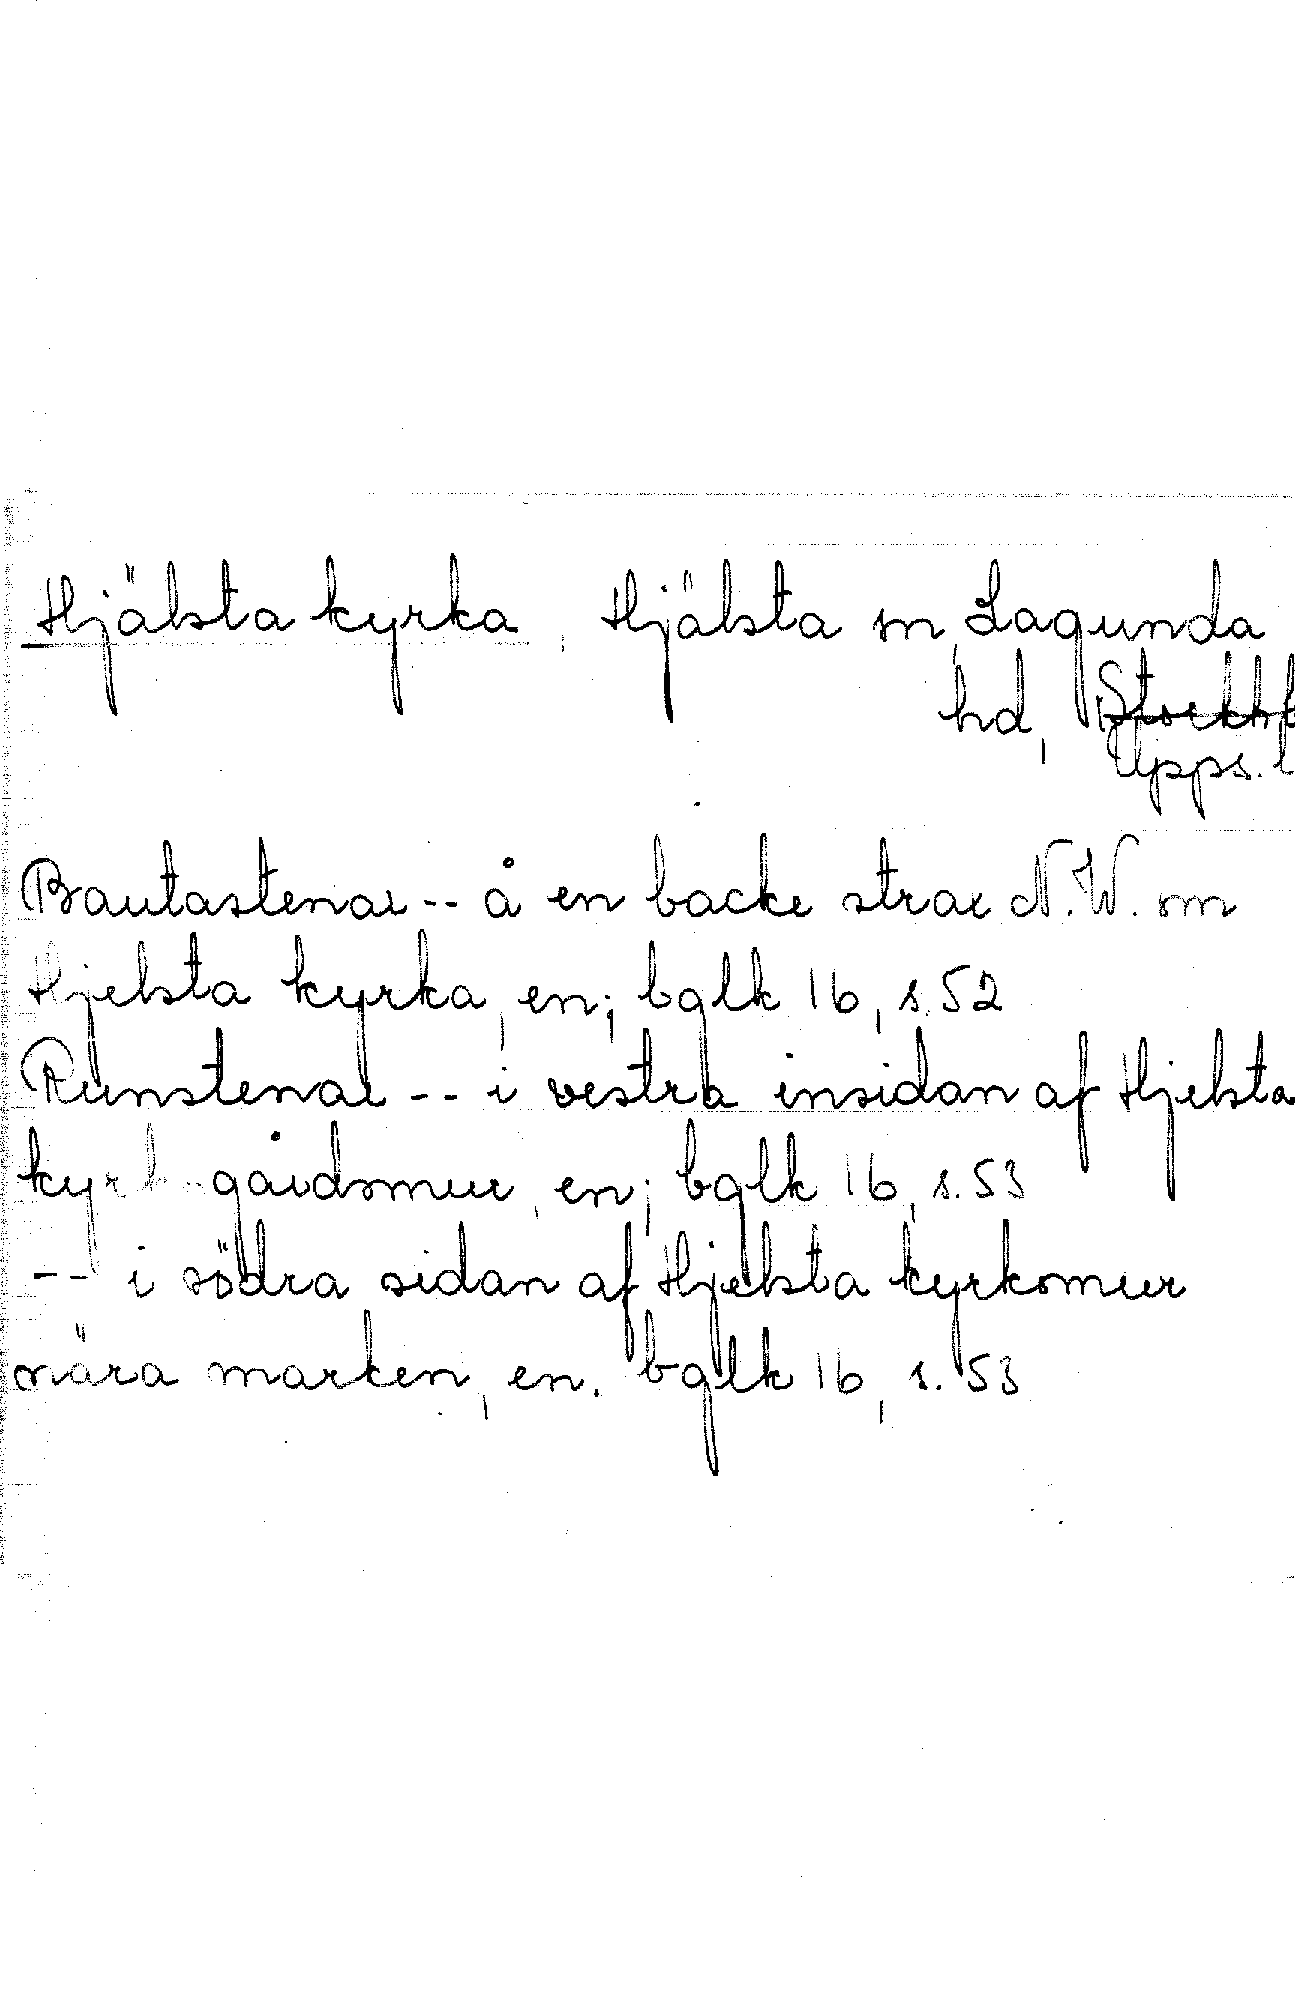 Hjälsta kyrka, Hjälsta sn, Lagunda
hd, Stockh
Upps. l
Bautastenar -- å en backe strax N.W. om
Hjelsta kyrka, en; bglk 16, s. 52
Runstenar -- i vestra insidan af Hjelsta
kyrk-gårdsmur, en; bglk 16, s. 53
-- i södra sidan af Hjelsta kyrkomur
nära marken, en. bglk 16, s. 53